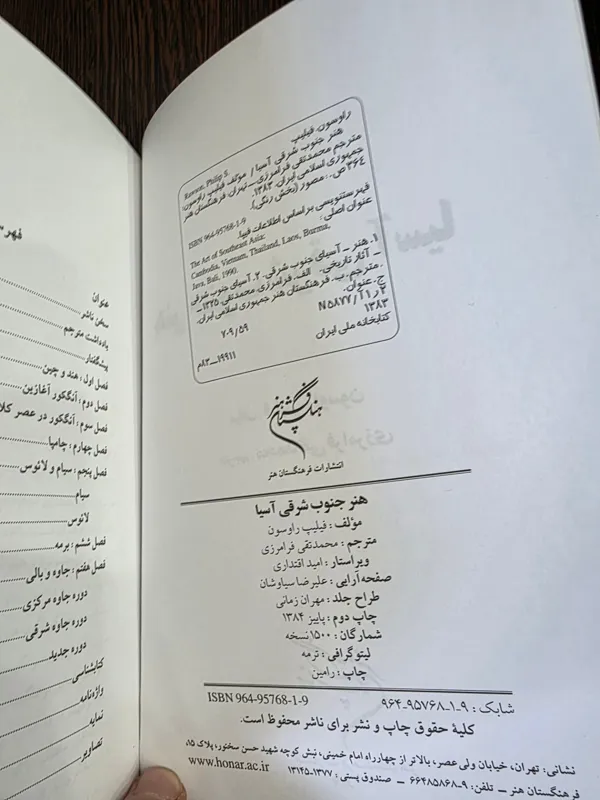 راوسون، فیلیپ
Rawson, Philip S.
هنر جنوب شرقی آسیا / مولف فیلیپ راوسون؛
مترجم محمدتقی فرامرزی. ـ تهران: فرهنگستان هنر
جمهوری اسلامی ایران، ۱۳۸۳.
۳۶۴ ص.: مصور (بخش رنگی).
ISBN 964-95768-1-9
فهرستنویسی براساس اطلاعات فیپا.
عنوان اصلی:
The Art of Southeast Asia:
Cambodia, Vietnam, Thailand, Laos, Burma,
Java, Bali, 1990.
۱. هنر ـ آسیای جنوب شرقی. ۲. آسیای جنوب شرقی
ـ آثار تاریخی. الف. فرامرزی، محمدتقی، ۱۳۲۵ـ
، مترجم. ب. فرهنگستان هنر جمهوری اسلامی ایران.
ج. عنوان.
N ۵۸۷۷/آ۱ر۲
۷۰۹/۵۹
۱۳۸۳
کتابخانه ملی ایران
۸۳ـ۱۹۹۱۱م
انتشارات فرهنگستان هنر
هنر جنوب شرقی آسیا
مؤلف: فیلیپ راوسون
مترجم: محمدتقی فرامرزی
ویراستار: امید اقتداری
صفحه‌آرایی: علیرضا سیاوشان
طراح جلد: مهران زمانی
چاپ دوم: پاییز ۱۳۸۴
شمارگان: ۱۵۰۰ نسخه
لیتوگرافی: ترمه
چاپ: رامین
شابک: ۹ـ۱ـ۹۵۷۶۸ـ۹۶۴ ISBN 964-95768-1-9
کلیهٔ حقوق چاپ و نشر برای ناشر محفوظ است.
نشانی: تهران، خیابان ولی عصر، بالاتر از چهارراه امام خمینی، نبش کوچه شهید حسن سخنور، پلاک ۱۵،
فرهنگستان هنر ـ تلفن: ۹ـ۶۶۴۸۵۸۶۸ ـ صندوق پستی: ۱۳۷۷ـ۱۳۱۴۵ www.honar.ac.ir
فهر
عنوان
سخن ناشر
یادداشت مترجم
پیشگفتار
فصل اول: هند و چین
فصل دوم: آنگکور آغازین
فصل سوم: آنگکور در عصر کلا
فصل چهارم: چامپا
فصل پنجم: سیام و لائوس
سیام
لائوس
فصل ششم: برمه
فصل هفتم: جاوه و بالی
دوره جاوه مرکزی
دوره جاوه شرقی
دوره جدید
کتابشناسی
واژه‌نامه
نمایه
تصاویر